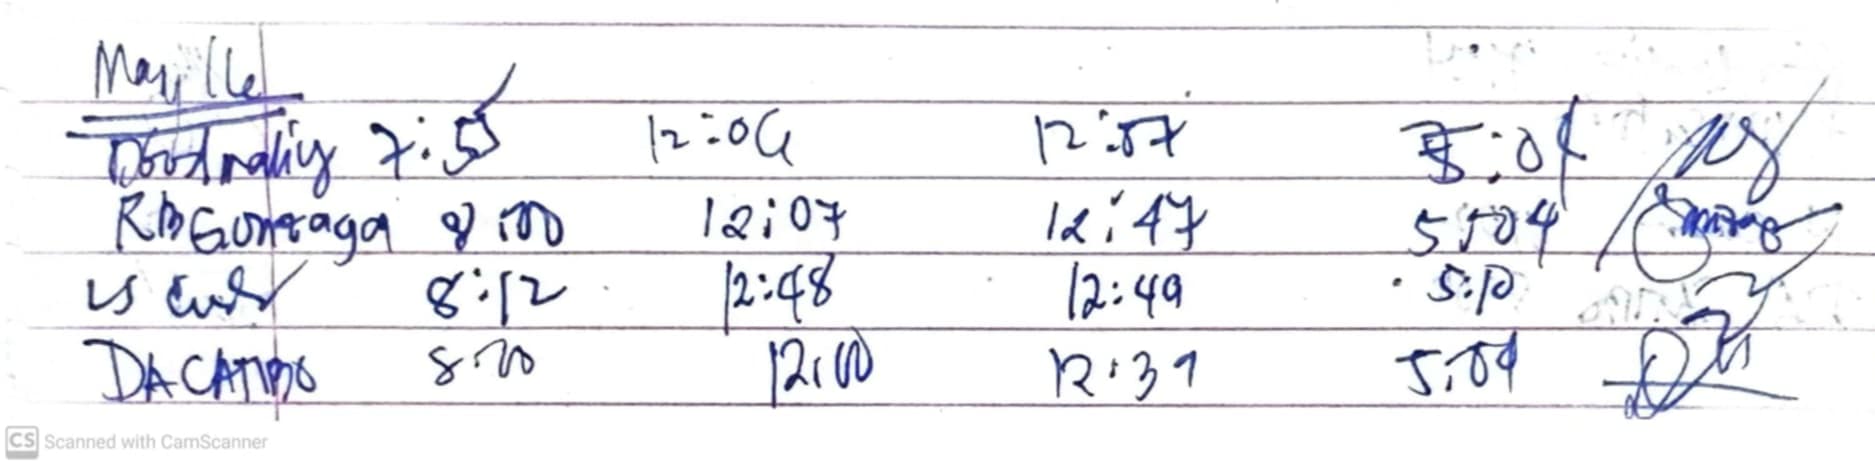 May 16
7:55 12:06 12:57 5:04
RB Gonzaga 8:00 12:07 12:47 5:04
8:12 12:48 12:49 5:10
DACATIMBO 8:00 12:00 12:39 5:04
CS Scanned with CamScanner